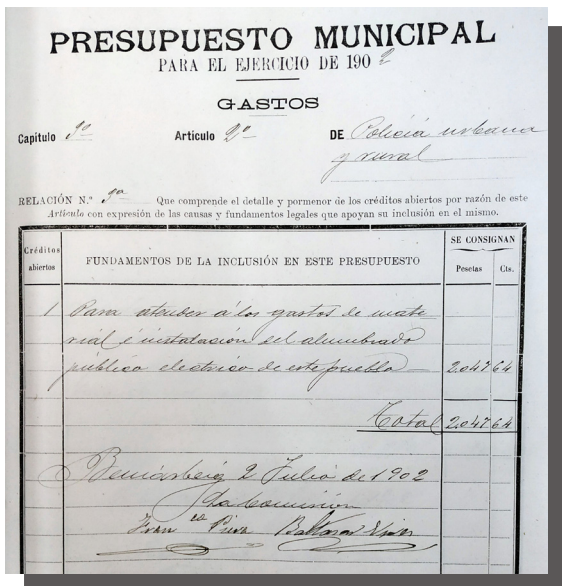 PRESUPUESTO MUNICIPAL
PARA EL EJERCICIO DE 1902
GASTOS
Capítulo 3º Articulo 2º DE Policía urbana
y rural
RELACIÓN N.º 9ª Que comprende el detalle y pormenor de los créditos abiertos por razón de este
Artículo con expresión de las causas y fundamentos legales que apoyan su inclusión en el mismo.
Créditos abiertos FUNDAMENTOS DE LA INCLUSIÓN EN ESTE PRESUPUESTO SE CONSIGNAN
Pesetas Cts.
1 Para atender á los gastos de mate
rial é instalación del alumbrado
público electrico de este pueblo 2.047 64
Total 2.047 64
Beniarbeig 2 Julio de 1902
La Comisión
Franco Puva Baltasar